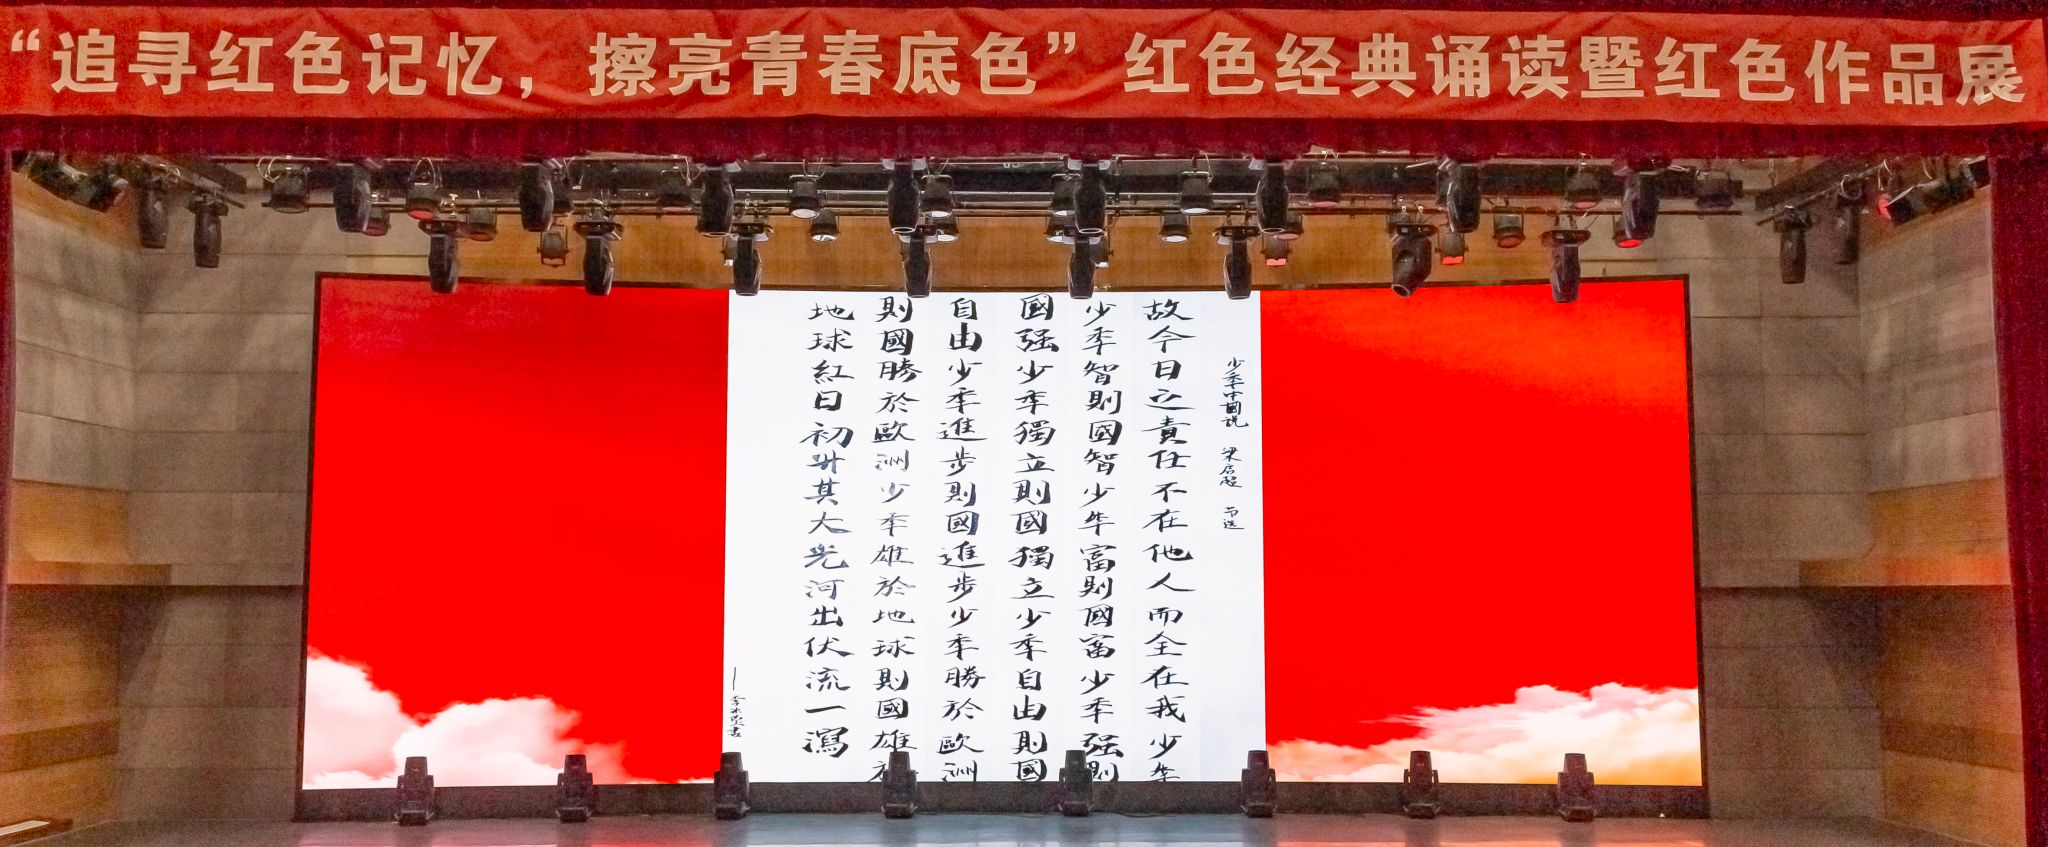 “追寻红色记忆，擦亮青春底色”红色经典诵读暨红色作品展
少年中國说 梁启超 节选
故今日之責任不在他人而全在我少年
少年智則國智少年富則國富少年强則
國强少年獨立則國獨立少年自由則國
自由少年進步則國進步少年勝於歐洲
則國勝於歐洲少年雄於地球則國雄於
地球紅日初升其大光河出伏流一瀉